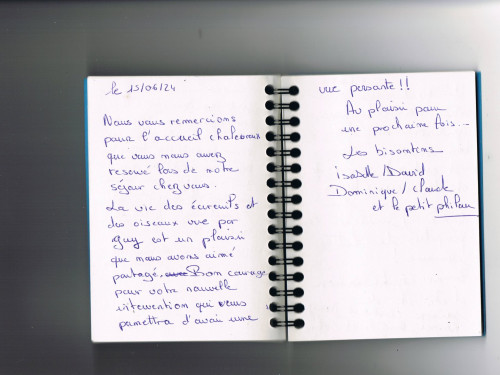 le 15/06/24
Nous vous remercions
pour l'accueil chaleureux
que vous nous avez
reservé lors de notre
séjour chez vous.
La vie des écureuils et
des oiseaux vue par
guy est un plaisir
que nous avons aimé
partagé. Bon courage
pour votre nouvelle
intervention qui vous
permettra d'avoir une
vue persante !!
Au plaisir pour
une prochaine fois...
Les bisontins
isabelle / David
Dominique / Claude
et le petit